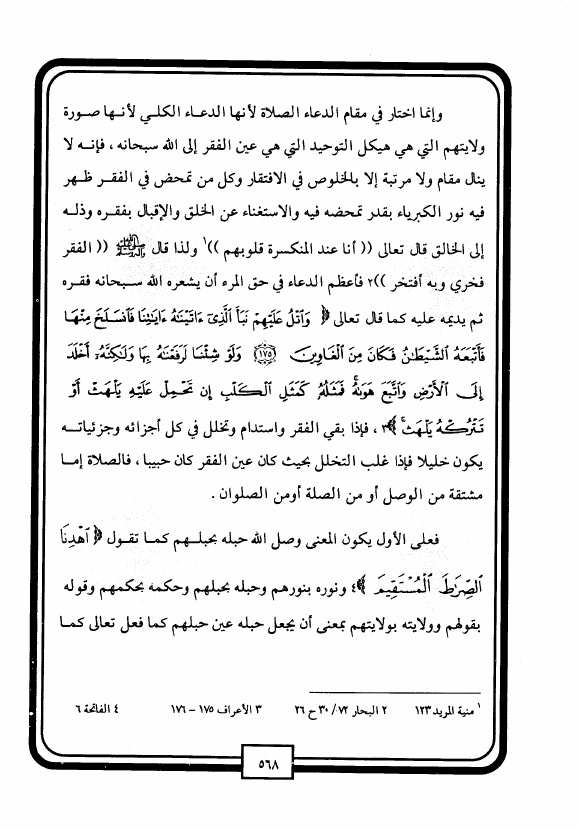 وإنما اختار في مقام الدعاء الصلاة لأنها الدعاء الكلي لأنها صورة
ولايتهم التي هي هيكل التوحيد التي هي عين الفقر إلى الله سبحانه ، فإنه لا
ينال مقام ولا مرتبة إلا بالخلوص في الافتقار وكل من تمحض في الفقر ظهر
فيه نور الكبرياء بقدر تمحضه فيه والاستغناء عن الخلق والإقبال بفقره وذله
إلى الخالق قال تعالى (( أنا عند المنكسرة قلوبهم ))١ ولذا قال ﷺ (( الفقر
فخري وبه أفتخر ))٢ فأعظم الدعاء في حق المرء أن يشعره الله سبحانه فقره
ثم يديمه عليه كما قال تعالى ﴿ وَٱتْلُ عَلَيْهِمْ نَبَأَ ٱلَّذِىٓ ءَاتَيْنَٰهُ ءَايَٰتِنَا فَٱنسَلَخَ مِنْهَا
فَأَتْبَعَهُ ٱلشَّيْطَٰنُ فَكَانَ مِنَ ٱلْغَاوِينَ ﴿١٧٥﴾ وَلَوْ شِئْنَا لَرَفَعْنَٰهُ بِهَا وَلَٰكِنَّهُۥٓ أَخْلَدَ
إِلَى ٱلْأَرْضِ وَٱتَّبَعَ هَوَىٰهُ ۚ فَمَثَلُهُۥ كَمَثَلِ ٱلْكَلْبِ إِن تَحْمِلْ عَلَيْهِ يَلْهَثْ أَوْ
تَتْرُكْهُ يَلْهَث ۚ ﴾٣ ، فإذا بقي الفقر واستدام وتخلل في كل أجزائه وجزئياته
يكون خليلا فإذا غلب التخلل بحيث كان عين الفقر كان حبيبا ، فالصلاة إما
مشتقة من الوصل أو من الصلة أومن الصلوان .
فعلى الأول يكون المعنى وصل الله حبله بحبلهم كما تقول ﴿ ٱهْدِنَا
ٱلصِّرَٰطَ ٱلْمُسْتَقِيمَ ﴾٤ ونوره بنورهم وحبله بحبلهم وحكمه بحكمهم وقوله
بقولهم وولايته بولايتهم بمعنى أن يجعل حبله عين حبلهم كما فعل تعالى كما
١ منية المريد ١٢٣ ٢ البحار ٧٢/ ٣٠ ح ٢٦ ٣ الأعراف ١٧٥ – ١٧٦ ٤ الفاتحة ٦
٥٦٨